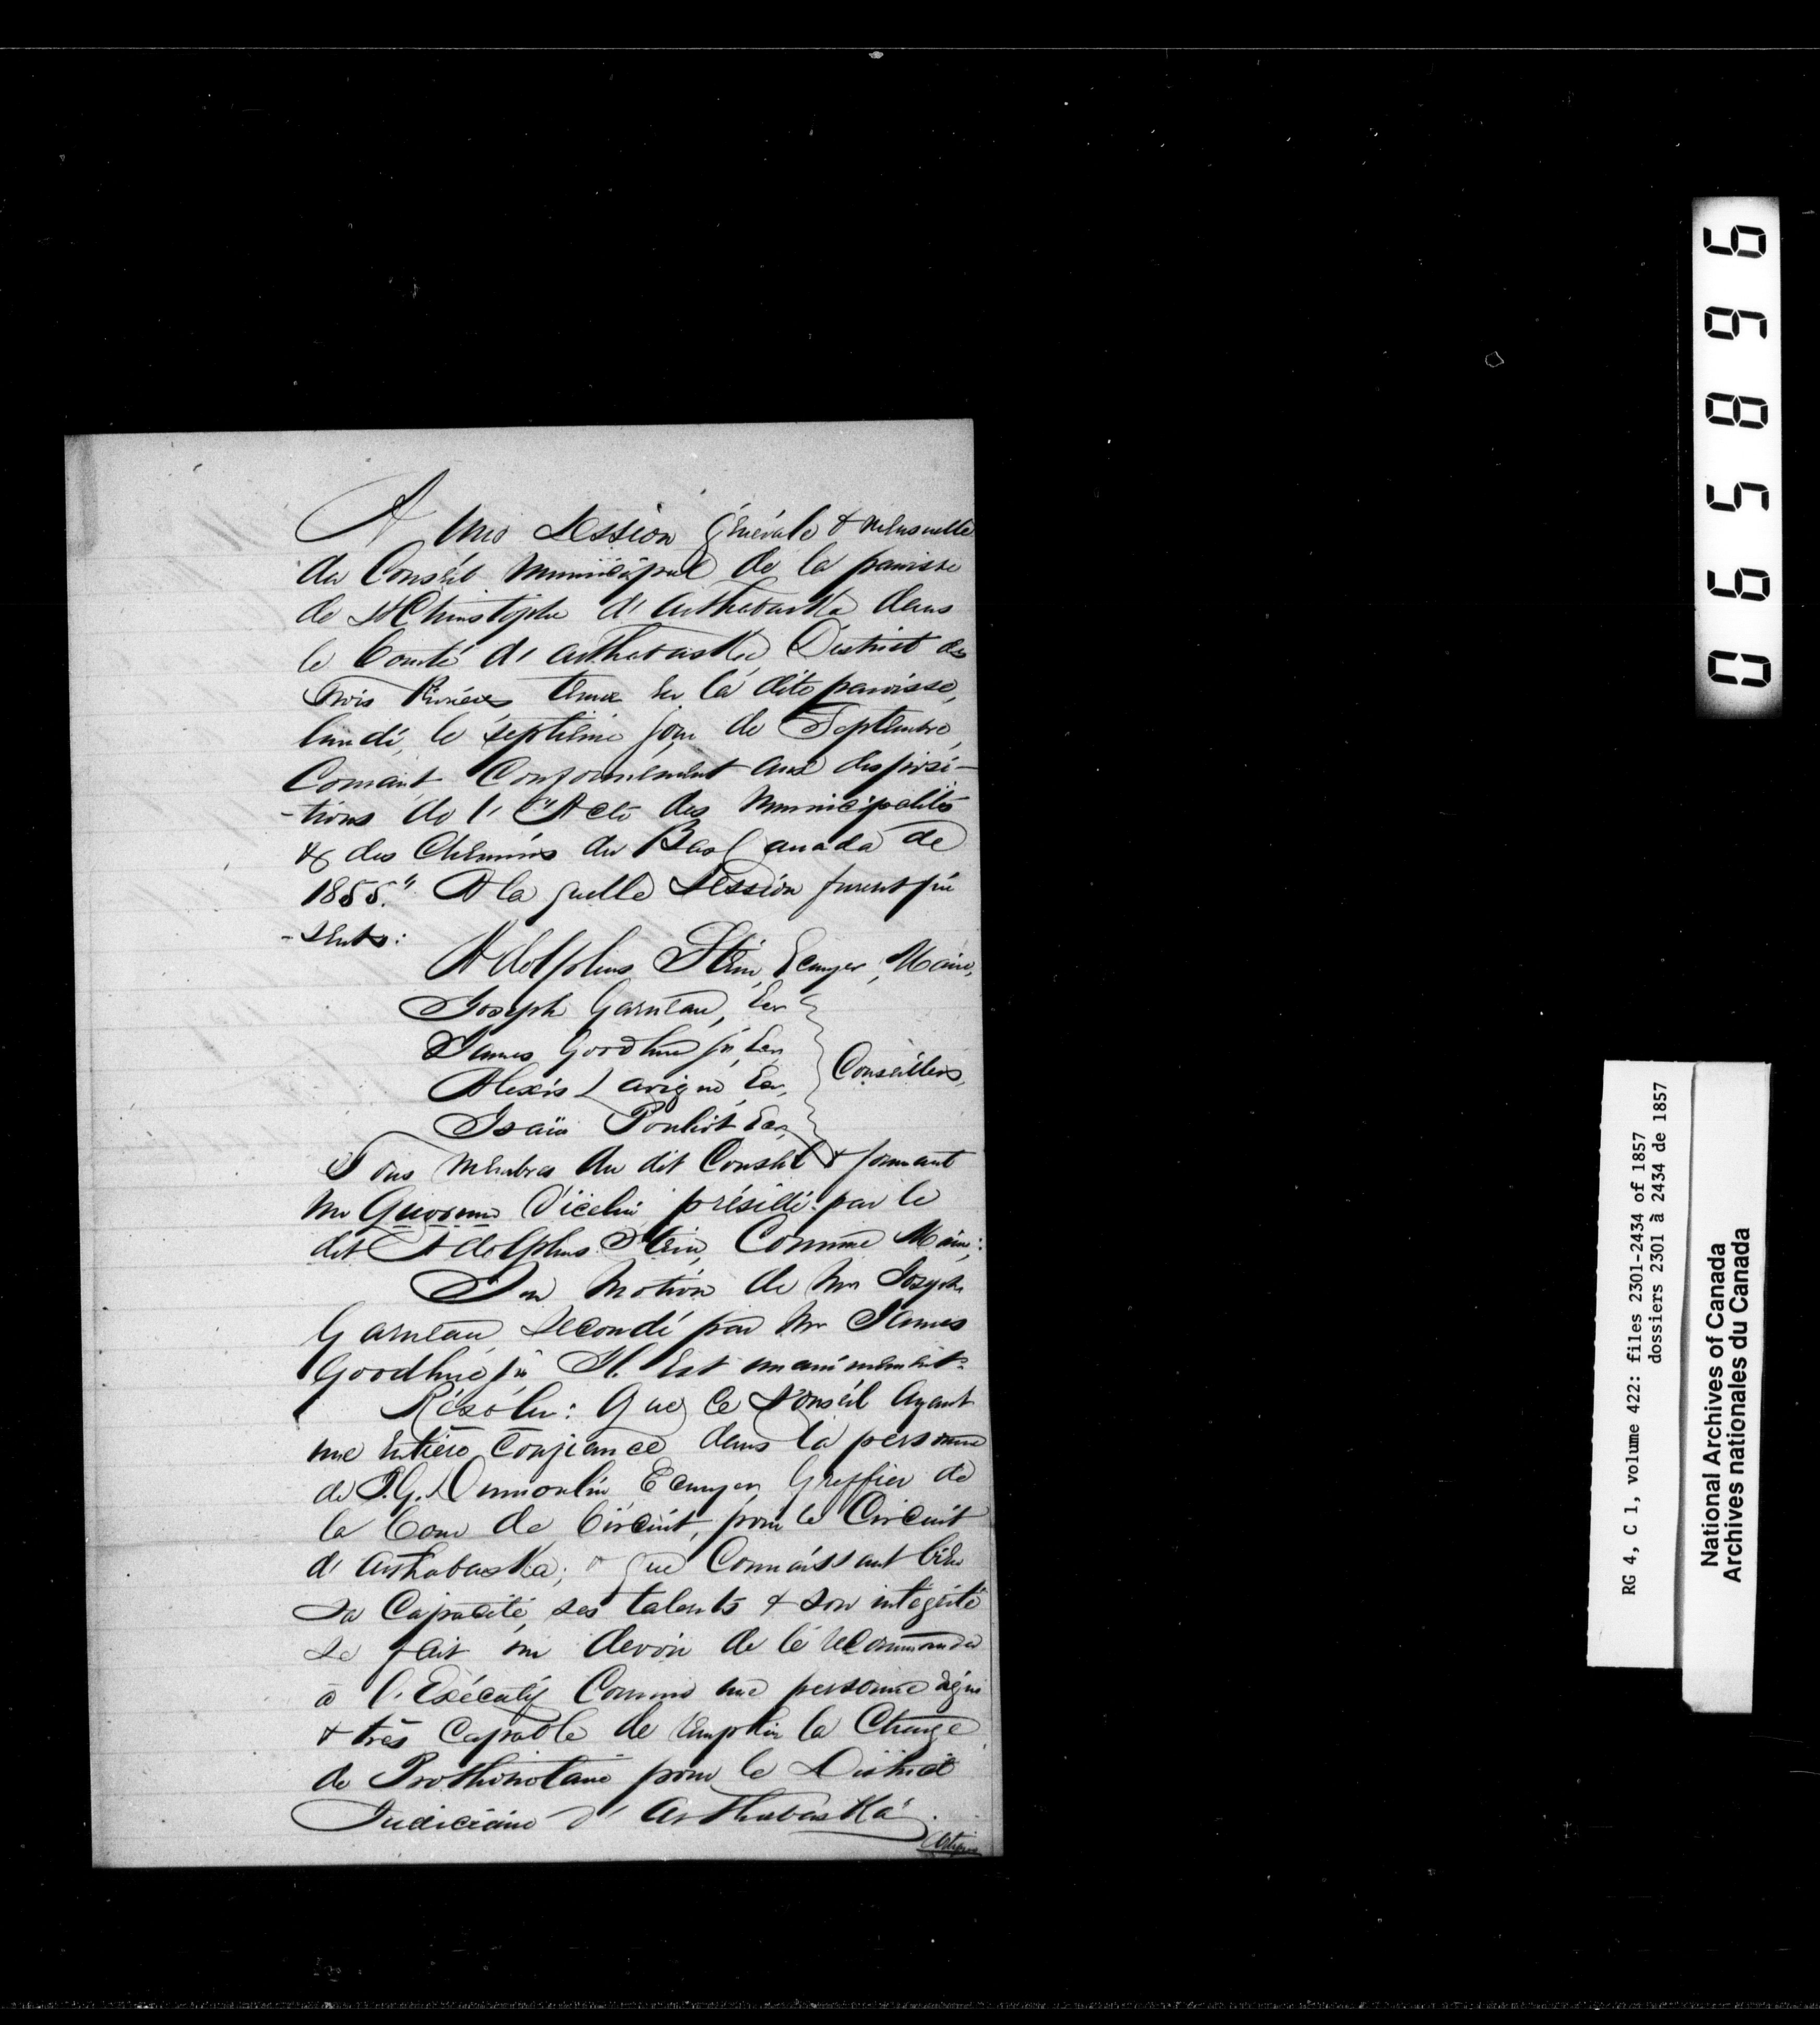 A une Session générale & mensuelle
du Conseil Municipal de la paroisse
de St Christophe d'Arthabaska dans
le Comté d'Arthabaska District des
Trois Rivières, tenue en la dite paroisse,
lundi, le septième jour de Septembre,
Courant, Conformément aux disposi-
-tions de l'"Acte des Municipalités
& des Chemins du Bas Canada de
1855." A la quelle Session furent pré
-sents:
Adolphus Stein, Ecuyer, Maire,
Joseph Garneau, Ecr
James Goodhue jr, Ecr,
Alexis Lavigne, Ecr,
Isaïe Pouliot Ecr,
Conseillers,
Tous membres du dit Conseil & formant
un Quorum d'icelui présidé par le
dit Adolphus Stein, Comme Maire;
Sur motion de Mr Joseph
Garneau secondé par Mr James
Goodhue jr Il est unanimement
Résolu: Que ce Conseil ayant
une entière confiance dans la personne
de P.G. Dumoulin Ecuyer, Greffier de
la Cour de Circuit, pour le Circuit
d'Arthabaska; & que Connaissant bien
sa Capacité, ses talents & son intégrité
se fait un devoir de le recommander
à l'Exécutif Comme une personne digne
& très Capable de remplir la Charge
de Prothonotaire pour le District
Judiciaire d'Arthabaska.
066896
RG 4, C 1, volume 422: files 2301-2434 of 1857
dossiers 2301 à 2434 de 1857
National Archives of Canada
Archives nationales du Canada